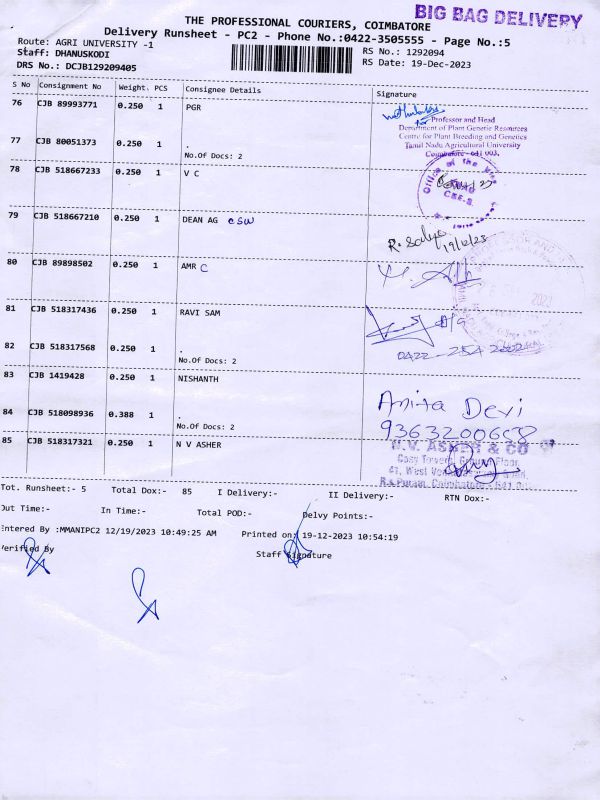 BIG BAG DELIVERY
THE PROFESSIONAL COURIERS, COIMBATORE
Delivery Runsheet - PC2 - Phone No.:0422-3505555 - Page No.:5
Route: AGRI UNIVERSITY -1
Staff: DHANUSKODI
DRS No.: DCJB129209405
RS No.: 1292094
RS Date: 19-Dec-2023
S No Consignment No Weight. PCS Consignee Details Signature
76 CJB 89993771 0.250 1 PGR
Professor and Head
Department of Plant Genetic Resources
Centre for Plant Breeding and Genetics
Tamil Nadu Agricultural University
Coimbatore - 641 003.
77 CJB 80051373 0.250 1 .
No.Of Docs: 2
78 CJB 518667233 0.250 1 V C
Office of the
79 CJB 518667210 0.250 1 DEAN AG CSW
R. 19/12/23
80 CJB 89898502 0.250 1 AMR C
2023
81 CJB 518317436 0.250 1 RAVI SAM
82 CJB 518317568 0.250 1 .
No.Of Docs: 2
83 CJB 1419428 0.250 1 NISHANTH
Anita Devi
84 CJB 518098936 0.388 1 .
No.Of Docs: 2
85 CJB 518317321 0.250 1 N V ASHER
N.V. ASHER & CO
Cosy Towers, Ground Floor,
41, West
R.S. Puram, Coimbatore
Tot. Runsheet:- 5 Total Dox:- 85 I Delivery:- II Delivery:- RTN Dox:-
Out Time:- In Time:- Total POD:- Delvy Points:-
Entered By :MMANIPC2 12/19/2023 10:49:25 AM Printed on: 19-12-2023 10:54:19
Verified By Staff Signature